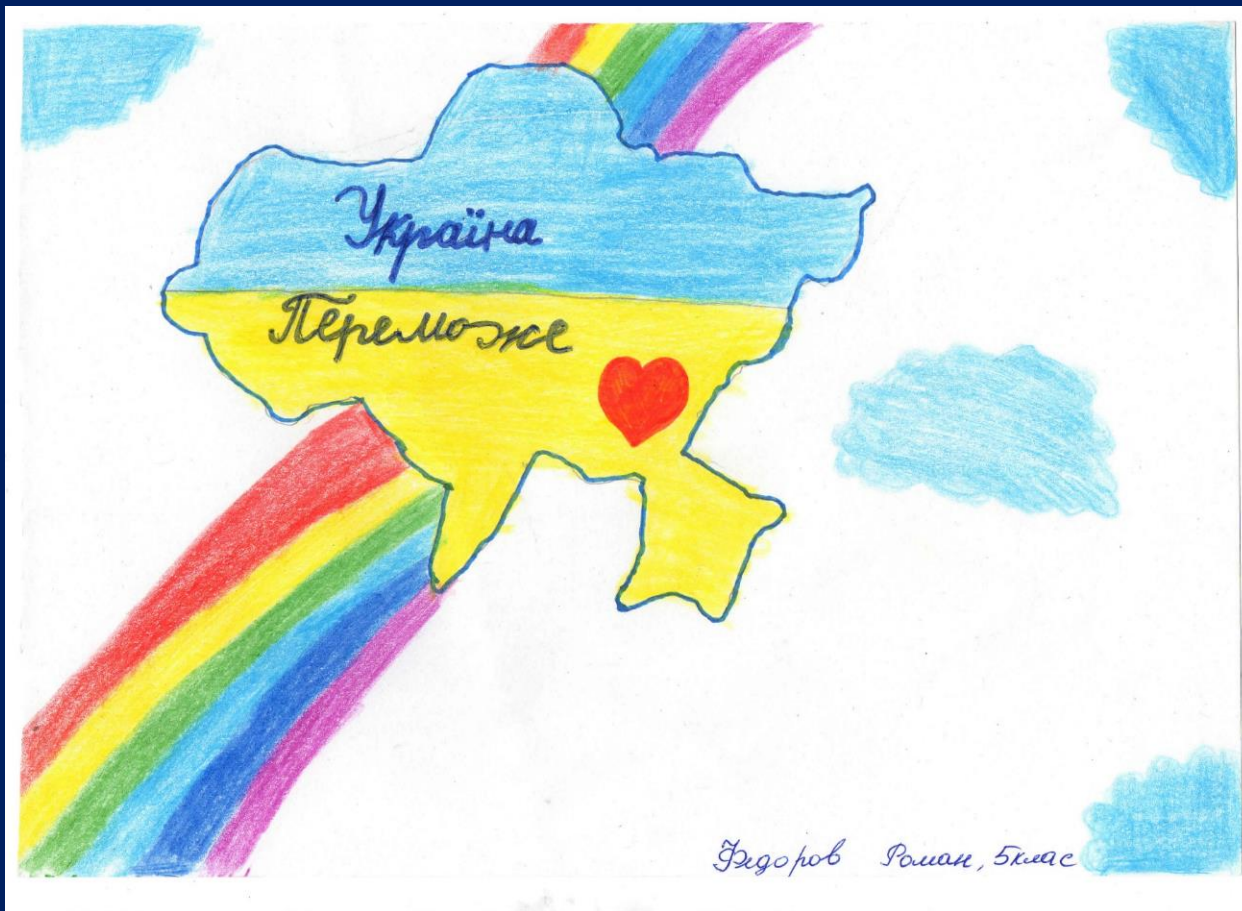 Україна
Переможе
Федоров Роман, 5клас